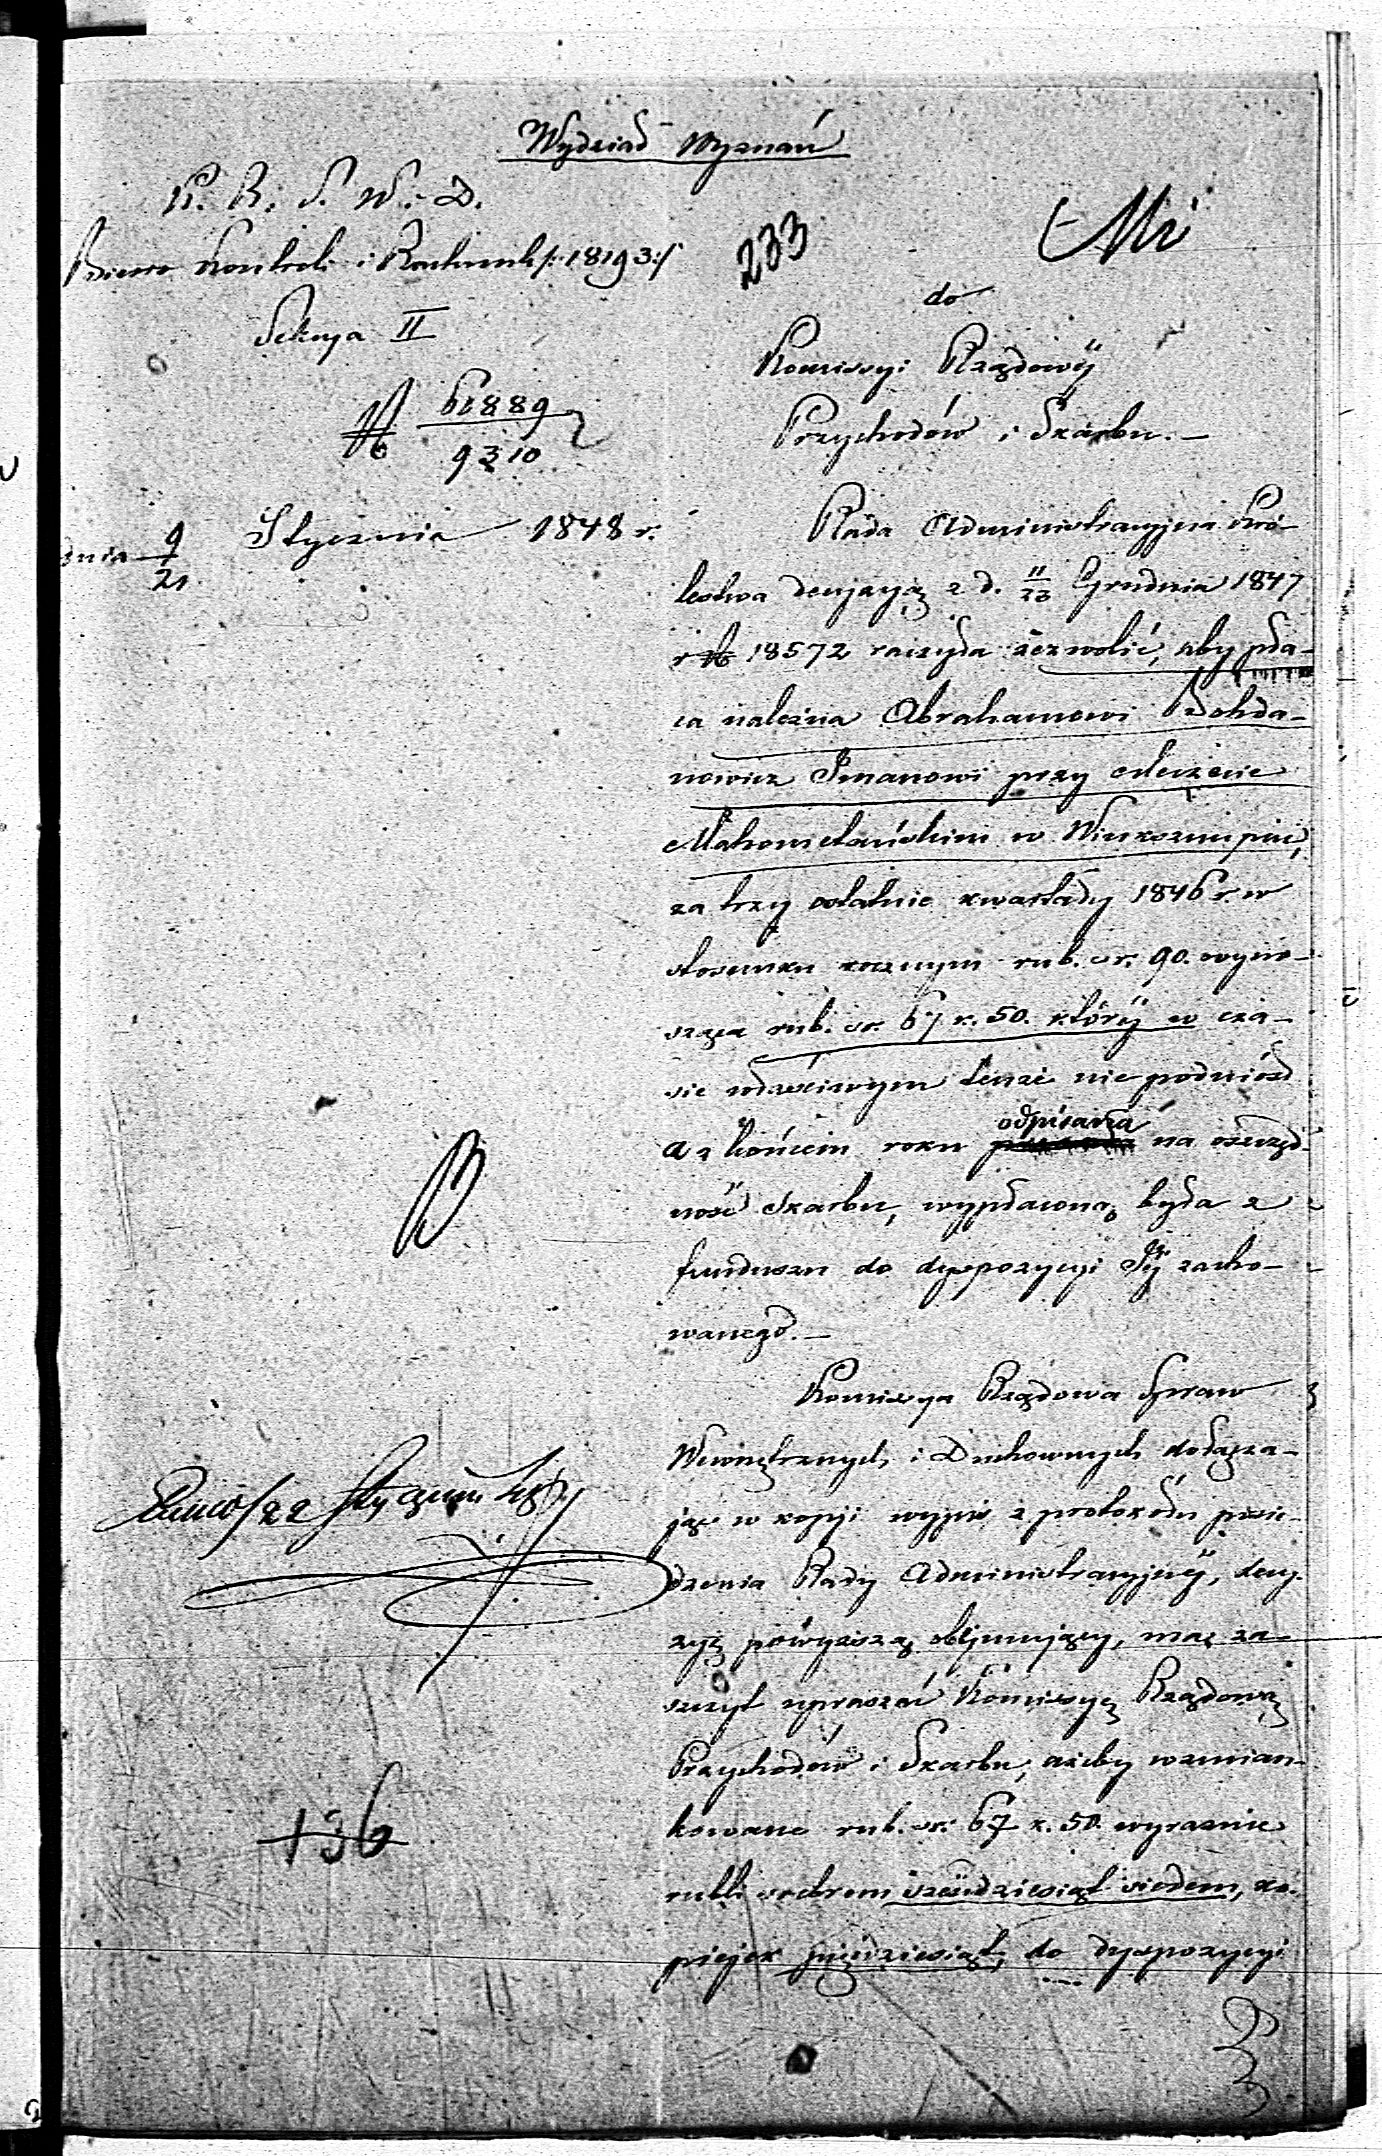 Wydział Wyznań
K. R. S. W. D.
Biuro Kontroli i Rachunk /:18193:/
Sekcya II
№ 61889
9310
dnia 9/21 Stycznia 1848 r.
233
do
Komissyi Rządowéj
Przychodów i Skarbu.—
Rada Administracyjna Kró-
lestwa decyzyą z d. 11/23 Grudnia 1847
r № 18572 raczyła zezwolić, aby pła-
ca należna Abrahamowi Bohda-
nowicz Imanowi przy Meczecie
Mahometańskim w Winksznupiu,
za trzy ostatnie kwartały 1846 r. w
stosunku rocznym rub. sr. 90. wyno-
sząca rub. sr. 67 k. 50. któréj w cza-
sie właściwym tenże nie podniósł
a z końcem roku odpisana na oszczęd-
ność Skarbu, wypłaconą była z
funduszu do dyspozycyi Jéj zacho-
wanego.—
Komissya Rządowa Spraw
Wewnętrznych i Duchownych dołącza-
jąc w kopji wypis z protokółu posie-
dzenia Rady Administracyjnéj, decy-
zyą powyższą obejmujący, ma za-
szczyt upraszać Komissyą Rządową
Przychodów i Skarbu, ażeby wzmian-
kowane rub. sr. 67 k. 50. wyraznie
rubli srebrem sześćdziesiąt siedem, ko-
piejek pięćdziesiąt, do dyspozycyi
136